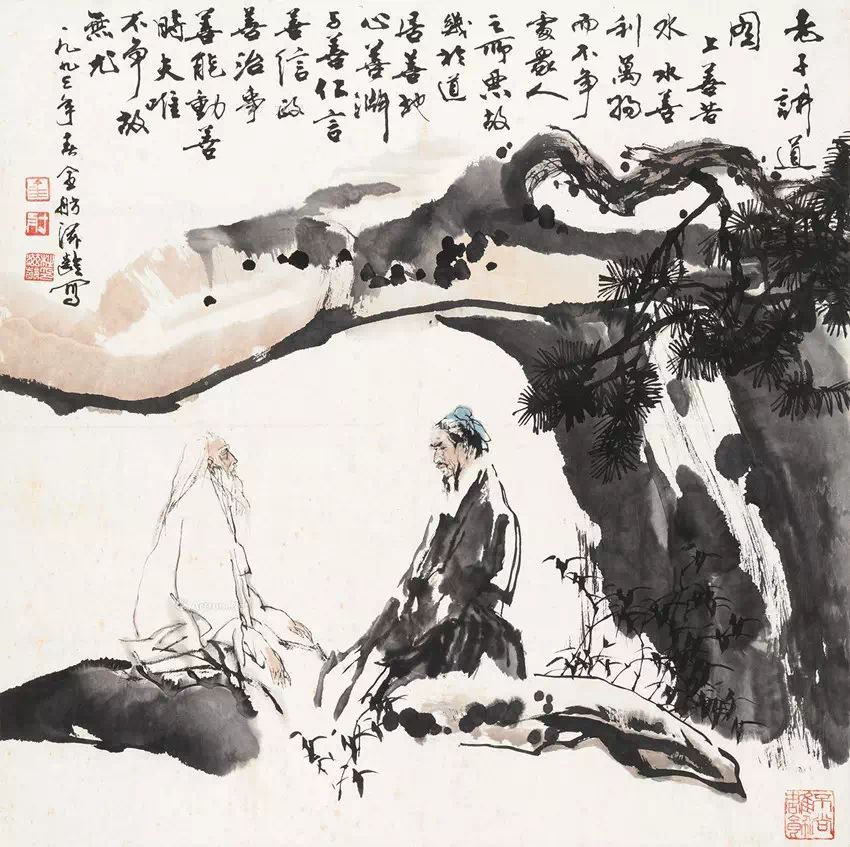 老子講道
圖
上善若
水水善
利萬物
而不争
處衆人
之所惡故
幾於道
居善地
心善渊
与善仁言
善信政
善治事
善能動善
時夫唯
不争故
無尤
一九九三年春金舫